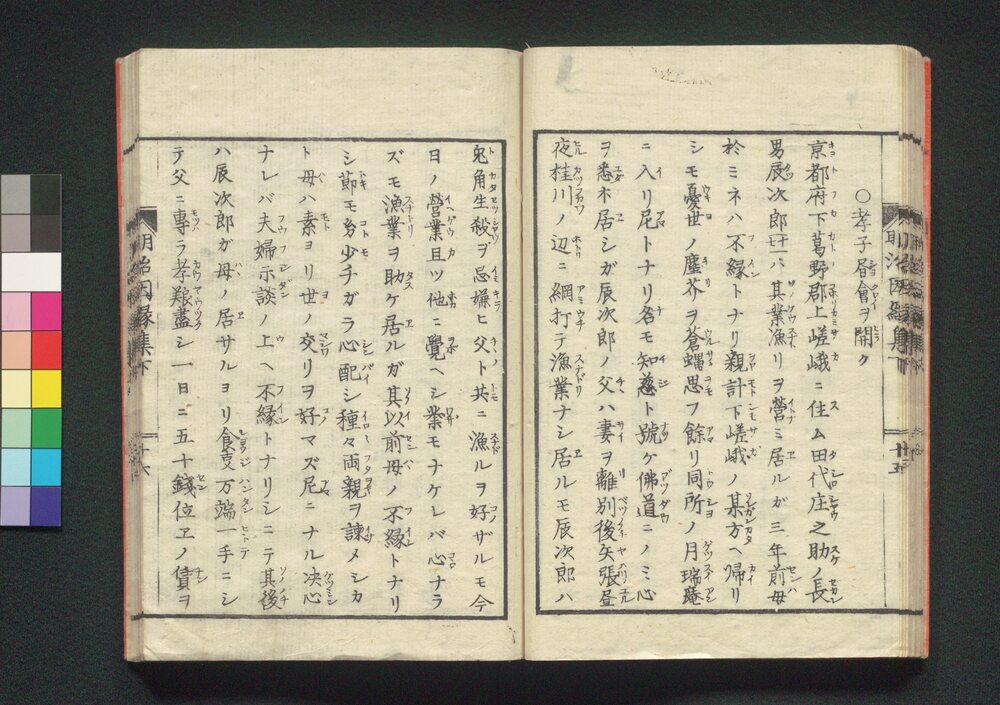 ○孝子晷會ヲ開ク
京都府下葛野郡上嵯峨ニ住ム田代庄之助ノ長
男辰次郎ハ其業漁リヲ營ミ居ルガ三年前母
於ミネハ不縁トナリ親計下嵯峨ノ某方ヘ帰リ
シモ憂世ノ塵芥ヲ蒼蝿思フ餘リ同所ノ月瑞菴
ニ入リ尼トナリ名モ知慈ト號ケ佛道ニノミ心
ヲ悉木居シガ辰次郎ノ父ハ妻ヲ離別後矢張昼
夜桂川ノ辺ニ網打テ漁業ナシ居ルモ辰次郎ハ
明治因縁集下
廿五
兎角生殺ヲ忌嫌ヒ父ト共ニ漁ルヲ好ザルモ今
日ノ營業且ツ他ニ覺ヘシ業モナケレバ心ナラ
ズモ漁業ヲ助ケ居ルガ其以前母ノ不縁トナリ
シ節モ男少チガラ心配シ種々両親ヲ諫メシカ
ト母ハ素ヨリ世ノ交リヲ好マズ尼ニナル决心
ナレバ夫婦示談ノ上ヘ不縁トナリシニテ其後
ハ辰次郎ガ母ノ居サルヨリ食叓万端一手ニシ
テ父ニ專ラ孝養盡シ一日ニ五十錢位ヱノ債ヲ
明治因縁集下
廿六